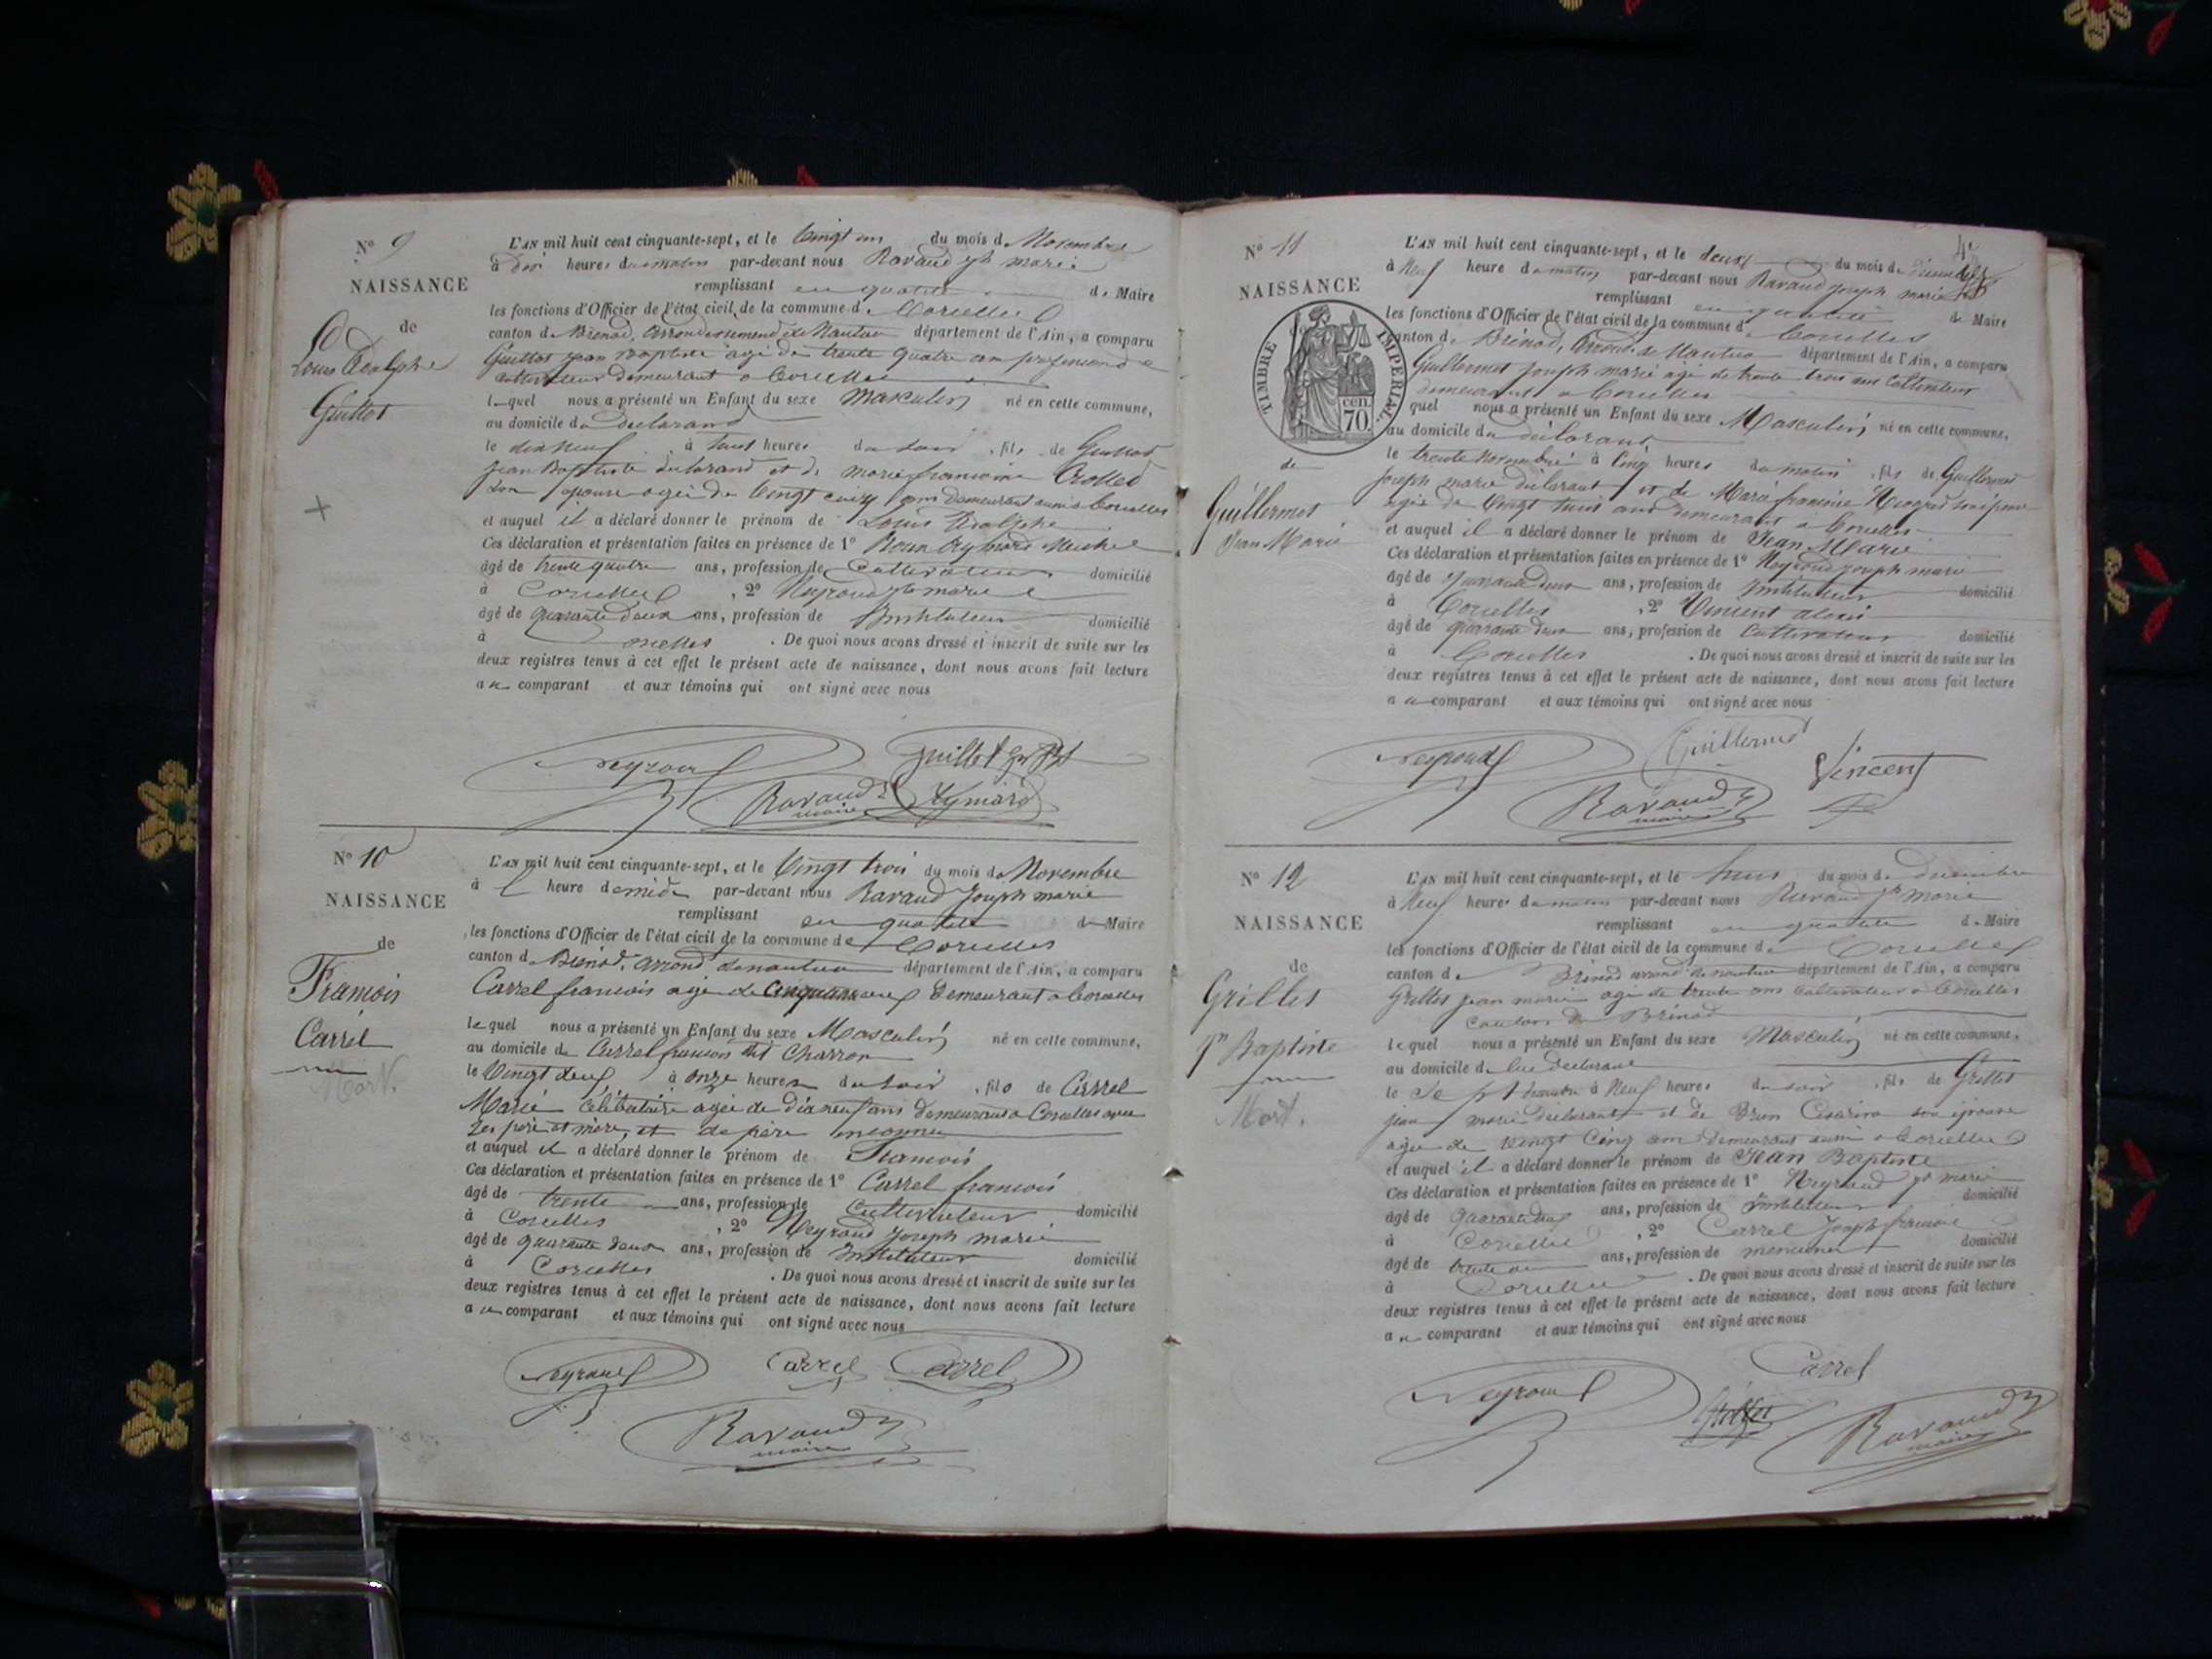 N° 9
NAISSANCE
de
Louis Adolphe
Guillot
L'AN mil huit cent cinquante-sept, et le vingt un du mois de Novembre
à dix heures du matin par-devant nous Ravaud Jph marie
remplissant en qualité de Maire
les fonctions d'Officier de l'état civil de la commune de Corcelles
canton de Brénod, arrondissement de Nantua département de l'Ain, a comparu
Guillot jean Baptiste agé de trente quatre ans profession de
cultivateur demeurant a Corcelles
lequel nous a présenté un Enfant du sexe Masculin né en cette commune,
au domicile du declarant
le dix neuf à huit heures du soir, fils de Guillot
jean Baptiste declarant et de marie françoise Crollet
son epouse agée de vingt cinq ans demeurant aussi a Corcelles
et auquel il a déclaré donner le prénom de Louis Adolphe
Ces déclaration et présentation faites en présence de 1° Aymard
âgé de trente quatre ans, profession de Cultivateur domicilié
à Corcelles, 2° Neyroud Jph marie
âgé de quarante deux ans, profession de Instituteur domicilié
à Corcelles. De quoi nous avons dressé et inscrit de suite sur les
deux registres tenus à cet effet le présent acte de naissance, dont nous avons fait lecture
au comparant et aux témoins qui ont signé avec nous
Neyroud Guillot Jn Bpt
Ravaud maire Aymard
N° 10
NAISSANCE
de
François
Carrel
Mort.
L'AN mil huit cent cinquante-sept, et le vingt trois du mois de Novembre
à heure de midi par-devant nous Ravaud Joseph marie
remplissant en qualité de Maire
les fonctions d'Officier de l'état civil de la commune de Corcelles
canton de Brénod, arrond. de nantua département de l'Ain, a comparu
Carrel francois agé de demeurant a Corcelles
lequel nous a présenté un Enfant du sexe Masculin né en cette commune,
au domicile de Carrel francois dit Charron
le vingt deux à onze heures du soir, fils de Carrel
Marie célibataire agée de dix neuf ans demeurant a Corcelles avec
ses père et mère, et de père inconnu
et auquel il a déclaré donner le prénom de François
Ces déclaration et présentation faites en présence de 1° Carrel francois
âgé de trente ans, profession de Cultivateur domicilié
à Corcelles, 2° Neyroud Joseph marie
âgé de quarante deux ans, profession de Instituteur domicilié
à Corcelles. De quoi nous avons dressé et inscrit de suite sur les
deux registres tenus à cet effet le présent acte de naissance, dont nous avons fait lecture
au comparant et aux témoins qui ont signé avec nous
Neyroud Carrel Carrel
Ravaud maire
4e
N° 11
NAISSANCE
TIMBRE IMPERIAL
70 cen.
de
Guillermet
Jean Marie
L'AN mil huit cent cinquante-sept, et le deux du mois de Décembre
à Neuf heure du matin par-devant nous Ravaud joseph marie
remplissant en qualité de Maire
les fonctions d'Officier de l'état civil de la commune de Corcelles
canton de Brénod, arrond. de Nantua département de l'Ain, a comparu
Guillermet joseph marie agé de trente trois ans Cultivateur
demeurant a Corcelles
quel nous a présenté un Enfant du sexe Masculin né en cette commune,
au domicile du déclarant
le trente Novembre à cinq heures du matin, fils de Guillermet
joseph marie déclarant et de Marie francoise Neyroud son épouse
agée de vingt huit ans demeurant a Corcelles
et auquel il a déclaré donner le prénom de Jean Marie
Ces déclaration et présentation faites en présence de 1° Neyroud joseph marie
âgé de quarante deux ans, profession de Instituteur domicilié
à Corcelles, 2° Vincent alexis
âgé de quarante deux ans, profession de Cultivateur domicilié
à Corcelles. De quoi nous avons dressé et inscrit de suite sur les
deux registres tenus à cet effet le présent acte de naissance, dont nous avons fait lecture
au comparant et aux témoins qui ont signé avec nous
Neyroud Guillermet Vincent
Ravaud maire
N° 12
NAISSANCE
de
Grillet
Jn Baptiste
Mort.
L'AN mil huit cent cinquante-sept, et le huit du mois de décembre
à Neuf heures du matin par-devant nous Ravaud Jph Marie
remplissant en qualité de Maire
les fonctions d'Officier de l'état civil de la commune de Corcelles
canton de Brénod arrond. de nantua département de l'Ain, a comparu
Grillet jean marie agé de trente ans cultivateur a Corcelles
canton de Brénod
lequel nous a présenté un Enfant du sexe Masculin né en cette commune,
au domicile de lui declarant
le sept à Neuf heures du soir, fils de Grillet
jean marie declarant et de Brun Césarine son épouse
agée de vingt cinq ans demeurant aussi a Corcelles
et auquel il a déclaré donner le prénom de Jean Baptiste
Ces déclaration et présentation faites en présence de 1° Neyroud Jph marie
âgé de quarante deux ans, profession de Instituteur domicilié
à Corcelles, 2° Carrel Joseph francois
âgé de trente ans, profession de menuisier domicilié
à Corcelles. De quoi nous avons dressé et inscrit de suite sur les
deux registres tenus à cet effet le présent acte de naissance, dont nous avons fait lecture
au comparant et aux témoins qui ont signé avec nous
Carrel
Neyroud Grillet Ravaud maire